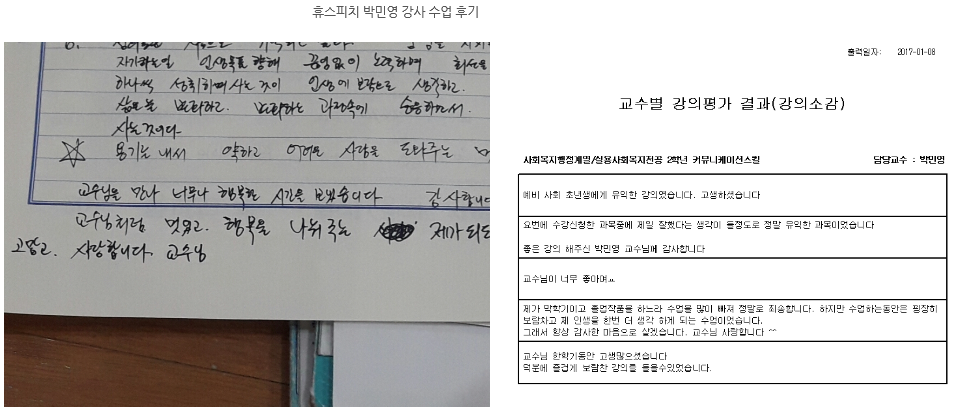 휴스피치 박민영 강사 수업 후기
자기하는일 인생목표를 향해 끊임없이 노력하며
하나씩 성취하며 사는 것이 인생에 보람으로 생각하고.
변화하고. 변화하는 과정속에 순응하면서.
사는것이다
용기를 내서 약하고 어려운 사람을 도와주는
교수님을 만나 너무나 행복한 시간을 보냈습니다 감사합니다
교수님처럼 멋있고. 행복을 나눠 주는 제가 되도
고맙고. 사랑합니다. 교수님
출력일자: 2017-01-08
교수별 강의평가 결과(강의소감)
사회복지행정계열/실용사회복지전공 2학년 커뮤니케이션스킬 담당교수 : 박민영
예비 사회 초년생에게 유익한 강의였습니다. 고생하셨습니다
요번에 수강신청한 과목중에 제일 잘했다는 생각이 들정도로 정말 유익한 과목이었습니다
좋은 강의 해주신 박민영 교수님께 감사합니다
교수님이 너무 좋아여ㅛ
제가 막학기이고 졸업작품을 하느라 수업을 많이 빠져 정말로 죄송합니다. 하지만 수업하는동안은 굉장히
보람차고 제 인생을 한번 더 생각 하게 되는 수업이었습니다.
그래서 항상 감사한 마음으로 살겠습니다. 교수님 사랑합니다 ^^
교수님 한학기동안 고생많으셨습니다
덕분에 즐겁게 보람찬 강의를 들을수있었습니다.